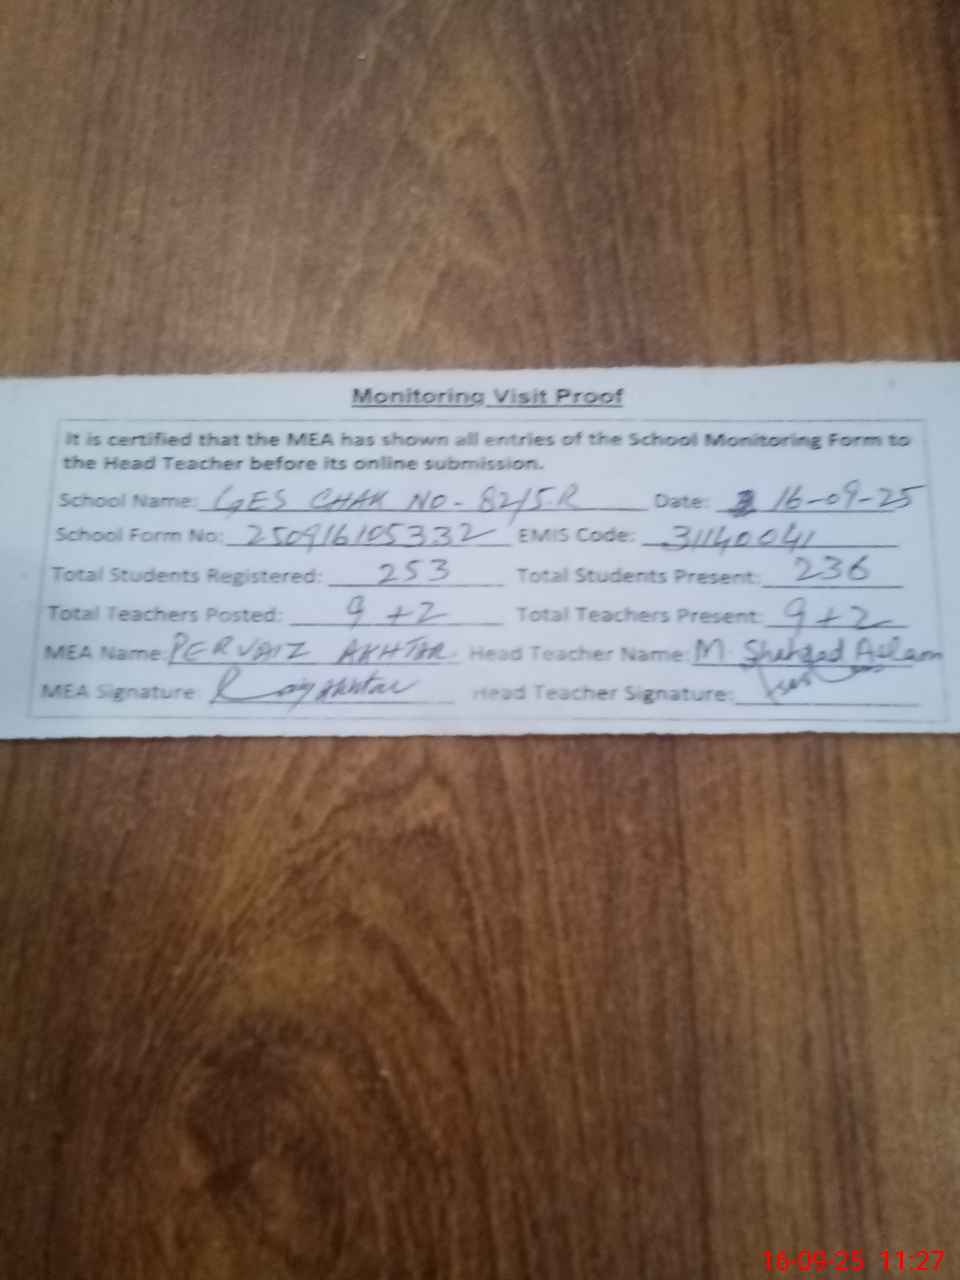 Monitoring Visit Proof
It is certified that the MEA has shown all entries of the School Monitoring Form to
the Head Teacher before its online submission.
School Name: GES CHAK NO-82/5R Date: 16-09-25
School Form No: 250916105332 EMIS Code: 31140041
Total Students Registered: 253 Total Students Present: 236
Total Teachers Posted: 9+2 Total Teachers Present: 9+2
MEA Name: PERVAIZ AKHTAR. Head Teacher Name: M. Shehzad Aslam
MEA Signature: Head Teacher Signature:
16-09-25 11:27